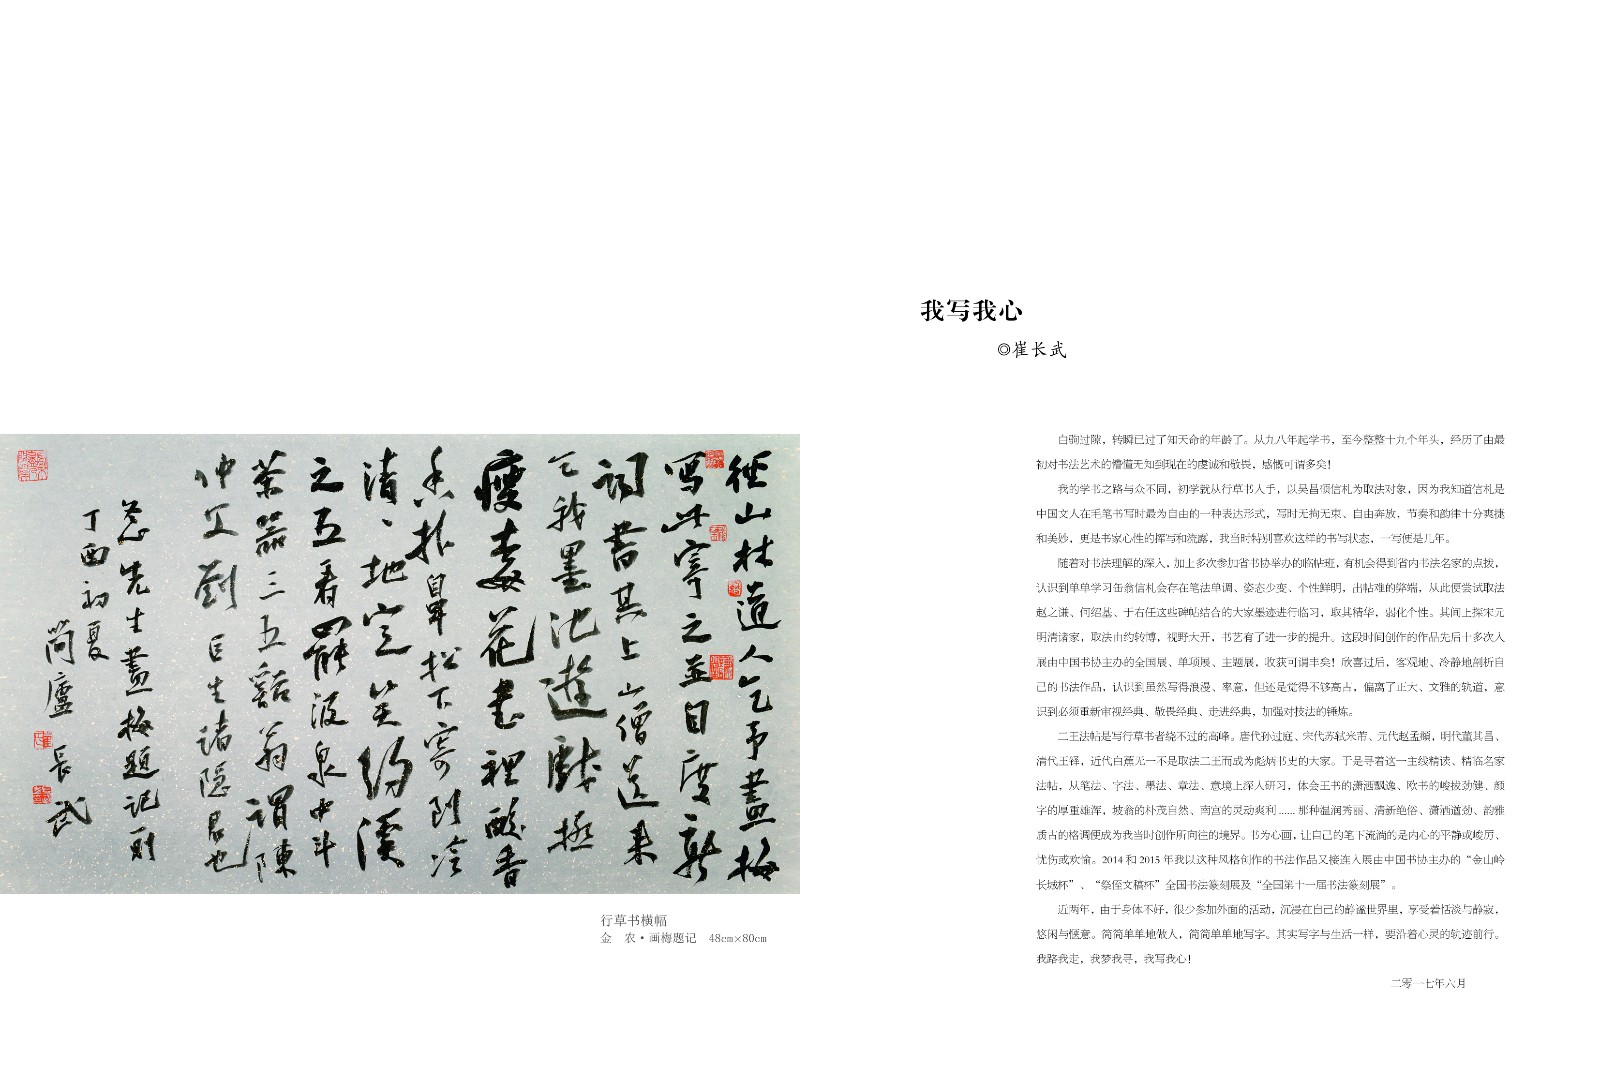 徑山林道人乞予畫梅
寫此寄之並自度新
詞書其上山僧送来
乞我墨池遊戲極
瘦梅花畫裡酸香
香撲鼻松下寄到冷
清、地定笑約溪
五看罷汲泉斗
茶器三五谿翁謂陳
仲父劉巨生諸隱君也
先生畫梅題記
丁酉初夏
簡廬 長武
行草书横幅
金 农·画梅题记 48cm×80cm
我写我心
◎崔长武
白驹过隙，转瞬已过了知天命的年龄了。从九八年起学书，至今整整十九个年头，经历了由最
初对书法艺术的懵懂无知到现在的虔诚和敬畏，感慨可谓多矣！
我的学书之路与众不同，初学就从行草书入手，以吴昌硕信札为取法对象，因为我知道信札是
中国文人在毛笔书写时最为自由的一种表达形式，写时无拘无束、自由奔放，节奏和韵律十分爽捷
和美妙，更是书家心性的挥写和流露，我当时特别喜欢这样的书写状态，一写便是几年。
随着对书法理解的深入，加上多次参加省书协举办的临帖班，有机会得到省内书法名家的点拨，
认识到单单学习缶翁信札会存在笔法单调、姿态少变、个性鲜明，出帖难的弊端，从此便尝试取法
赵之谦、何绍基、于右任这些碑帖结合的大家墨迹进行临习，取其精华，弱化个性。其间上探宋元
明清诸家，取法由约转博，视野大开，书艺有了进一步的提升。这段时间创作的作品先后十多次入
展由中国书协主办的全国展、单项展、主题展，收获可谓丰矣！欣喜过后，客观地、冷静地剖析自
己的书法作品，认识到虽然写得浪漫、率意，但还是觉得不够高古，偏离了正大、文雅的轨道，意
识到必须重新审视经典、敬畏经典、走进经典，加强对技法的锤炼。
二王法帖是写行草书者绕不过的高峰。唐代孙过庭、宋代苏轼米芾、元代赵孟頫，明代董其昌、
清代王铎，近代白蕉无一不是取法二王而成为彪炳书史的大家。于是寻着这一主线精读、精临名家
法帖，从笔法、字法、墨法、章法、意境上深入研习，体会王书的潇洒飘逸、欧书的峻拔劲健、颜
字的厚重雄浑，坡翁的朴茂自然、南宫的灵动爽利......那种温润秀丽、清新绝俗、潇洒遒劲、韵雅
质古的格调便成为我当时创作所向往的境界。书为心画，让自己的笔下流淌的是内心的平静或峻厉、
忧伤或欢愉。2014 和 2015 年我以这种风格创作的书法作品又接连入展由中国书协主办的“金山岭
长城杯”、“祭侄文稿杯”全国书法篆刻展及“全国第十一届书法篆刻展”。
近两年，由于身体不好，很少参加外面的活动，沉浸在自己的静谧世界里，享受着恬淡与静寂，
悠闲与惬意。简简单单地做人，简简单单地写字。其实写字与生活一样，要沿着心灵的轨迹前行。
我路我走，我梦我寻，我写我心！
二零一七年六月